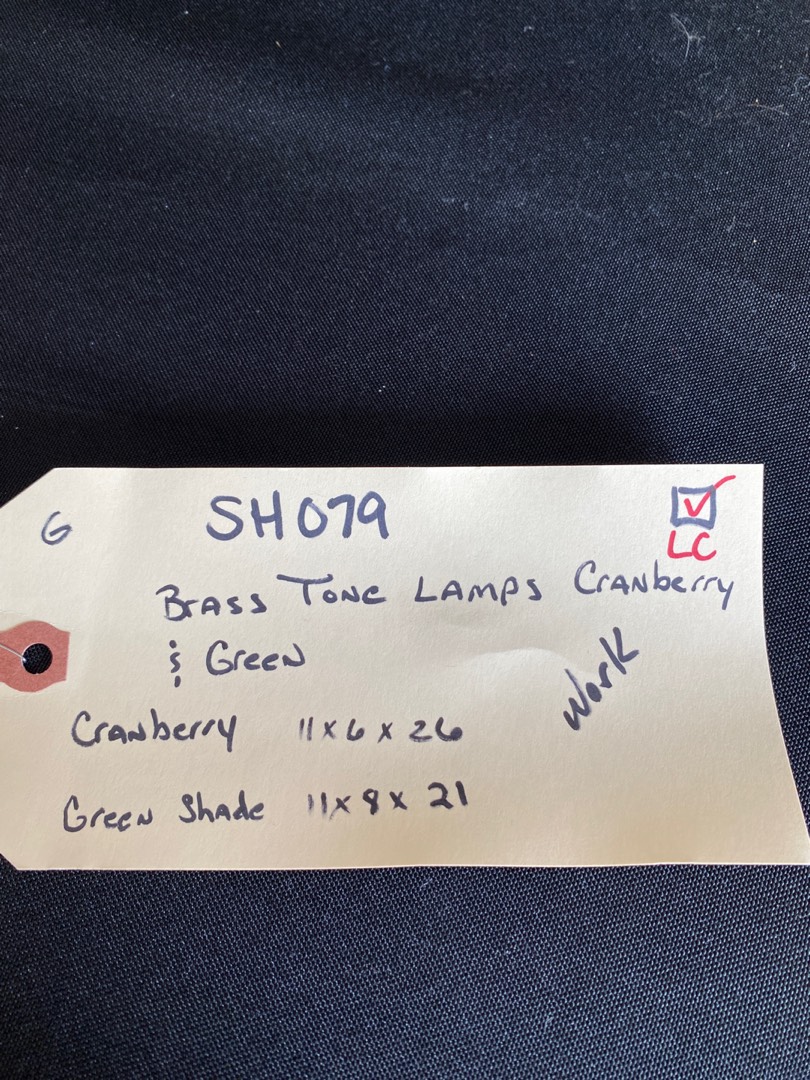 G SH079
LC
Brass Tone Lamps Cranberry
& Green
Work
Cranberry 11 x 6 x 26
Green Shade 11 x 8 x 21